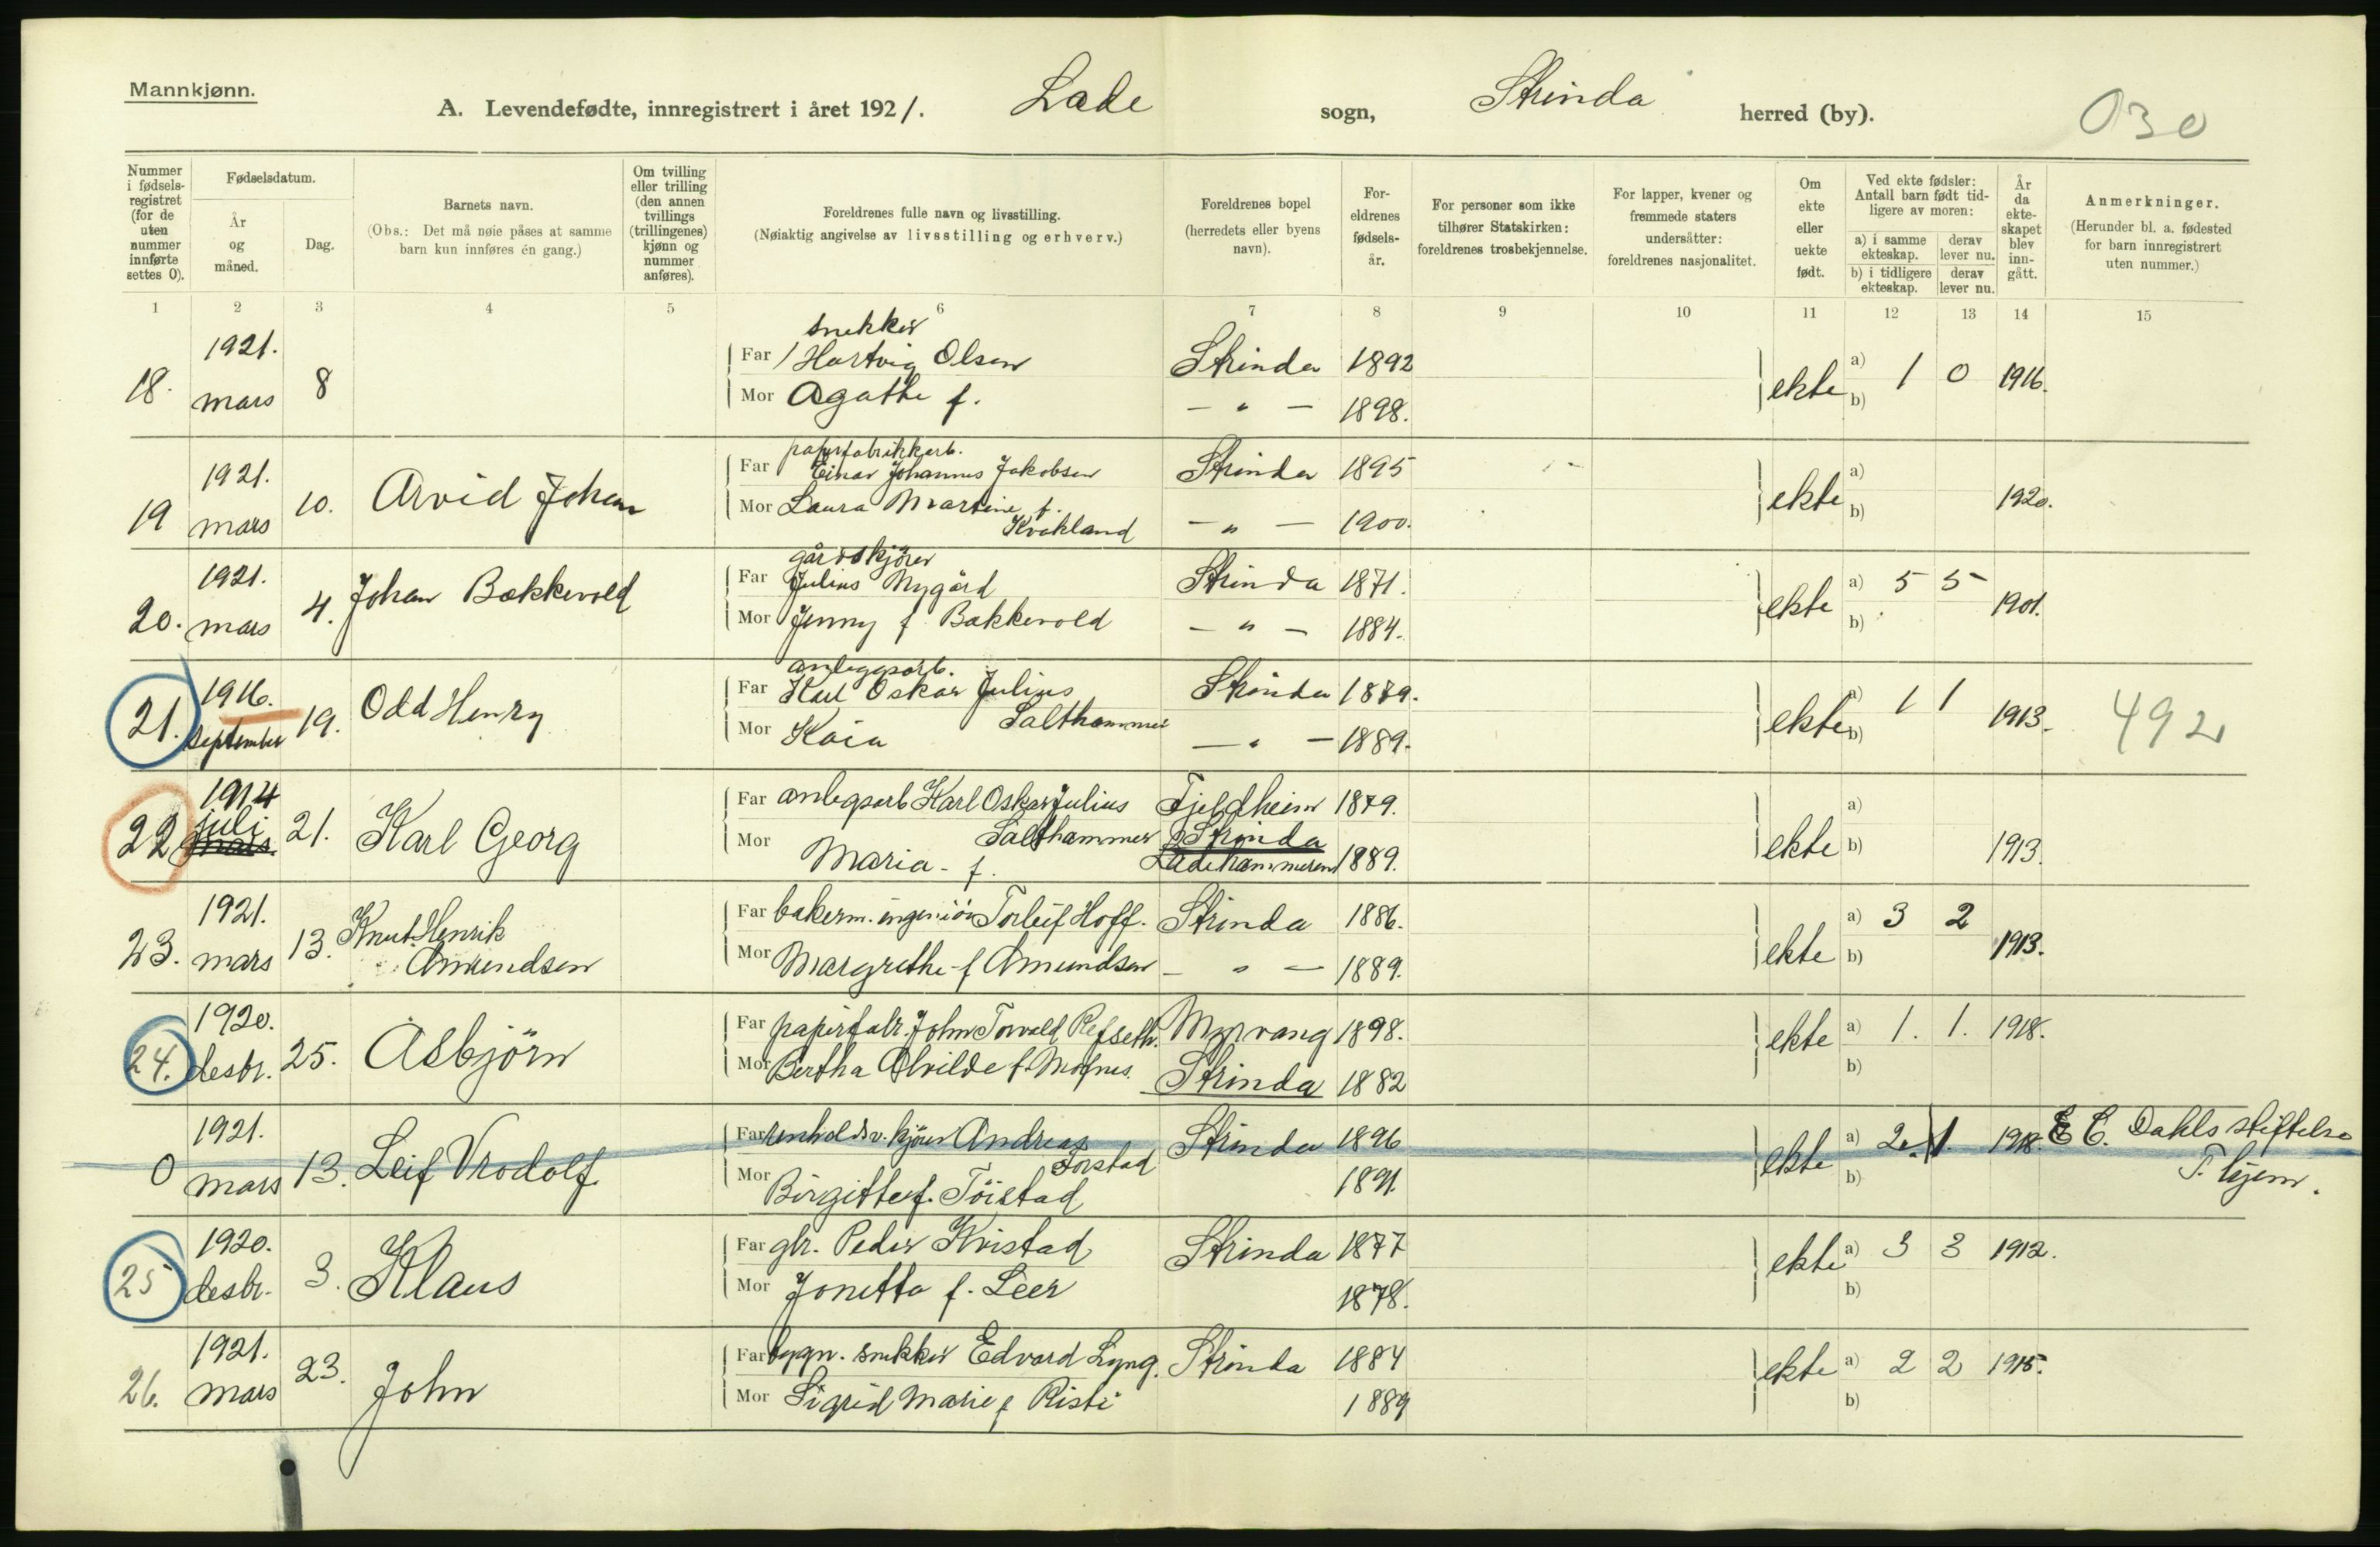 Mannkjønn.
A. Levendefødte, innregistrert i året 1921. Lade sogn, Strinda herred (by). 030
Nummer i fødsels-registret (for de uten nummer innførte settes 0).
Fødselsdatum.
År og måned.
Dag.
Barnets navn.
(Obs.: Det må nøie påses at samme barn kun innføres én gang.)
Om tvilling eller trilling (den annen tvillings (trillingenes) kjønn og nummer anføres).
Foreldrenes fulle navn og livsstilling.
(Nøiaktig angivelse av livsstilling og erhverv.)
Foreldrenes bopel (herredets eller byens navn).
For-eldrenes fødsels-år.
For personer som ikke tilhører Statskirken: foreldrenes trosbekjennelse.
For lapper, kvener og fremmede staters undersåtter: foreldrenes nasjonalitet.
Om ekte eller uekte født.
Ved ekte fødsler: Antall barn født tid-ligere av moren:
a) i samme ekteskap. derav lever nu.
b) i tidligere ekteskap. derav lever nu.
År da ekte-skapet blev inn-gått.
Anmerkninger.
(Herunder bl. a. fødested for barn innregistrert uten nummer.)
1 2 3 4 5 6 7 8 9 10 11 12 13 14 15
snekker
1921. Far Hartvig Olsen Strinda 1892
18. mars 8 Mor Agathe f. — " — 1898. ekte a) b) 1 0 1916.
papirfabrikkarb.
1921. Far Einar Johannes Jakobsen Strinda 1895
19 mars 10. Arvid Johan Mor Laura Martine f. Kvakland — " — 1900. ekte a) b) 1920.
gårdskjører
1921. Far Julius Nygård Strinda 1871.
20. mars 4. Johan Bakkevold Mor Jenny f. Bakkevold — " — 1884. ekte a) 5 5 b) 1901.
anleggsarb.
1916. Far Karl Oskar Julius Salthammer Strinda 1879.
21. september 19. Odd Henry Mor Kaia — " — 1889. ekte a) 1 1 b) 1913. 492
1914 Far anlegsarb Karl Oskar Julius Salthammer Fjeldheim 1879.
22 juli mars 21. Karl Georg Mor Maria - f. Strinda Ladehammeren 1889. ekte a) b) 1913.
1921. Far bakerm. ingeniør Torleif Hoff. Strinda 1886.
23. mars 13. Knut Henrik Amundsen Mor Margrethe f Amundsen — " — 1889. ekte a) 3 2 b) 1913.
1920. Far papirfabr. John Torvald Refseth. Myrvang 1898.
24. desbr. 25. Asbjörn Mor Bertha Alvilde f. Strinda 1882 ekte a) 1. 1. b) 1918.
1921. Far renholdsv. kjører Andreas Strinda 1896
0 mars 13. Leif Mor Birgitte f. 1891. ekte a) 2. 1. b) 1918. E. C. Dahls stiftelse T. hjem.
1920. Far gbr. Peder Kvistad Strinda 1877
25 desbr. 3. Klaus Mor Jonetta f. Leer 1878. ekte a) 3 3 b) 1912.
1921. Far bygn. snekker Edvard Lyng. Strinda 1884
26. mars 23. John Mor Sigrid Marie f Risti 1889 ekte a) 2 2 b) 1915.